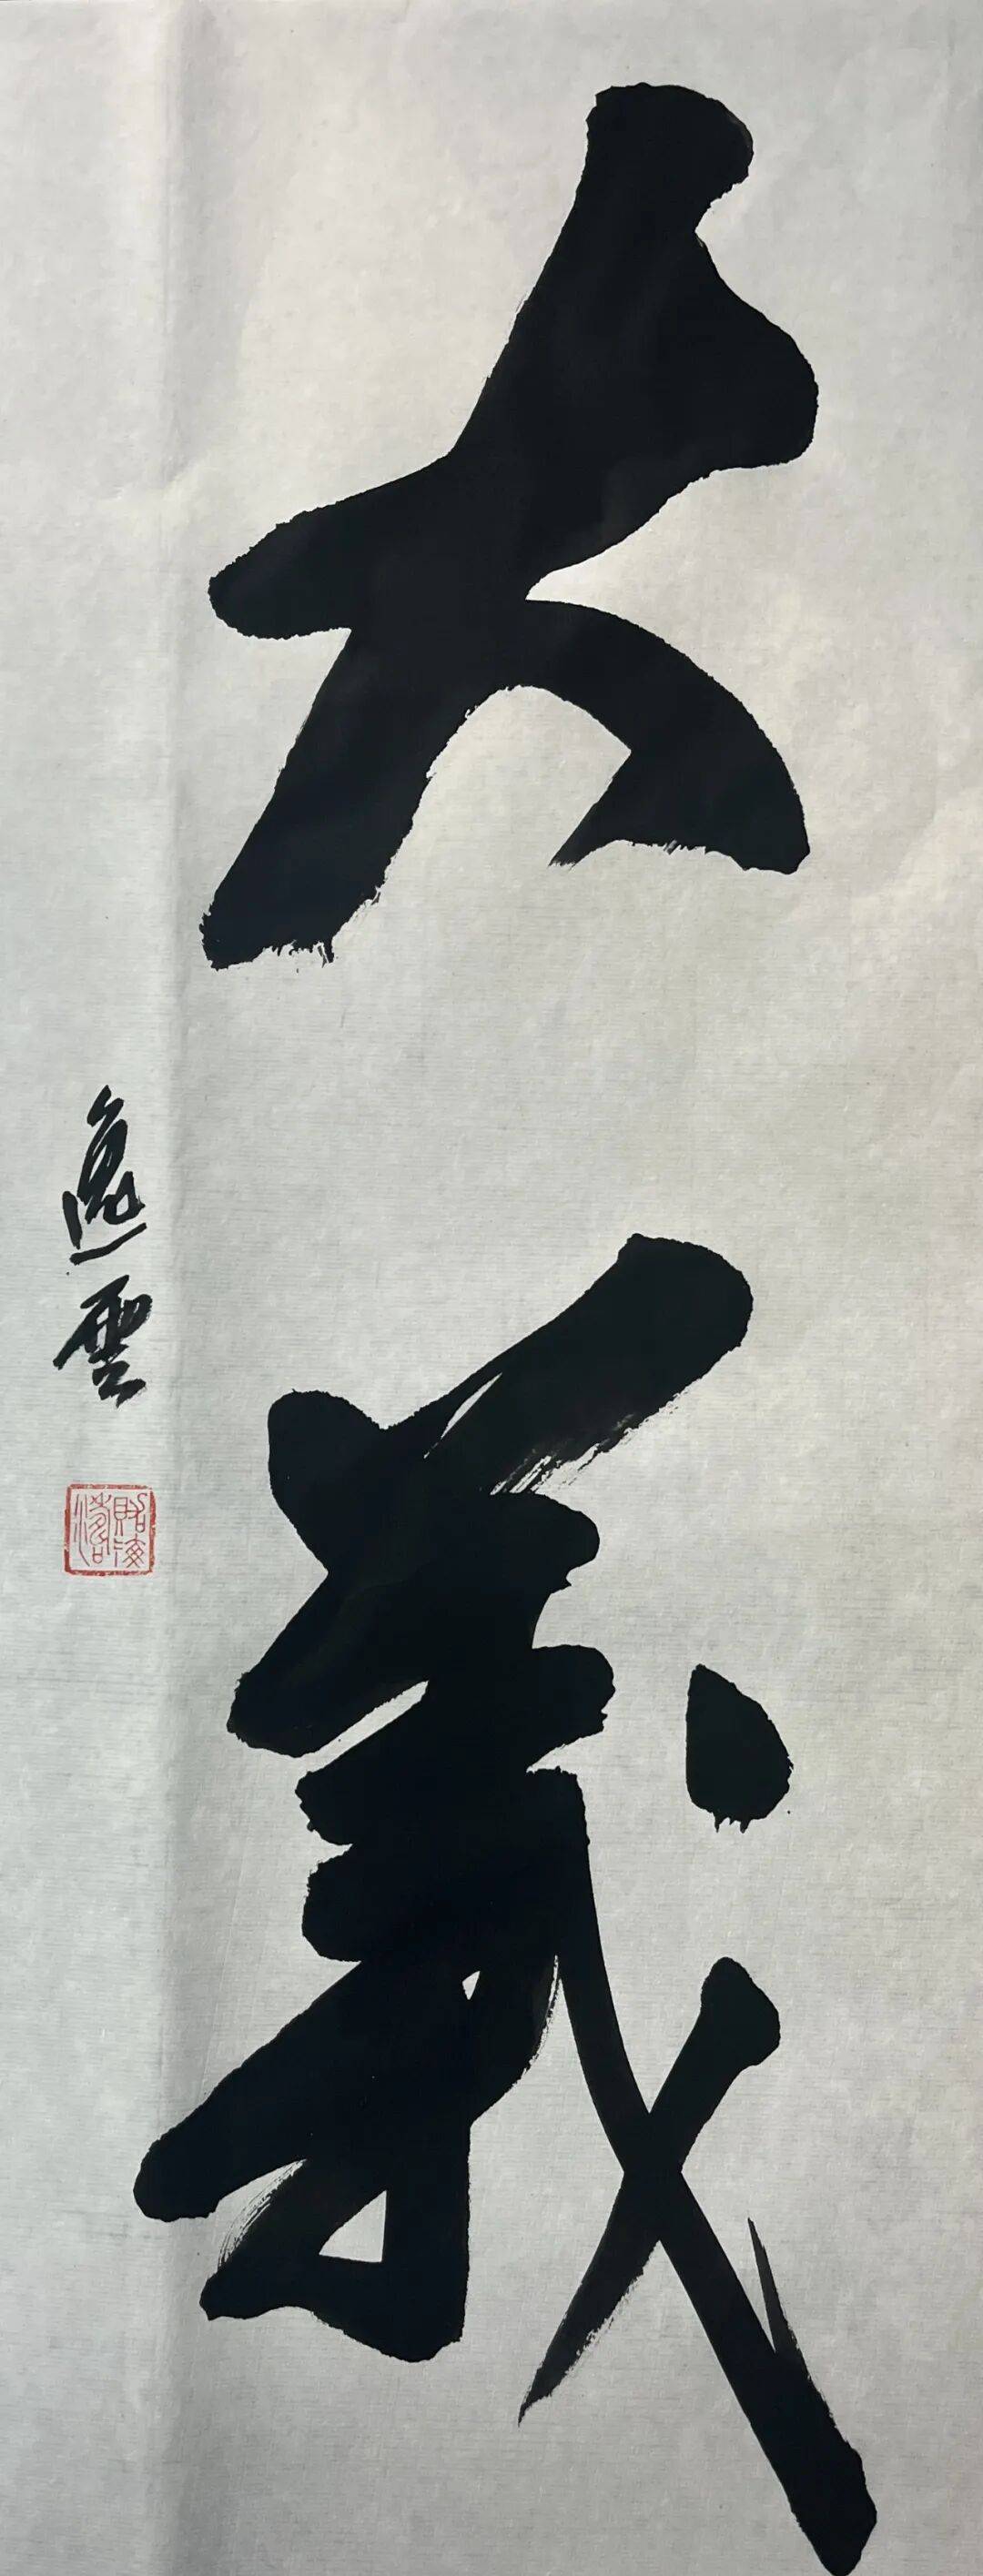 大義
逸雲